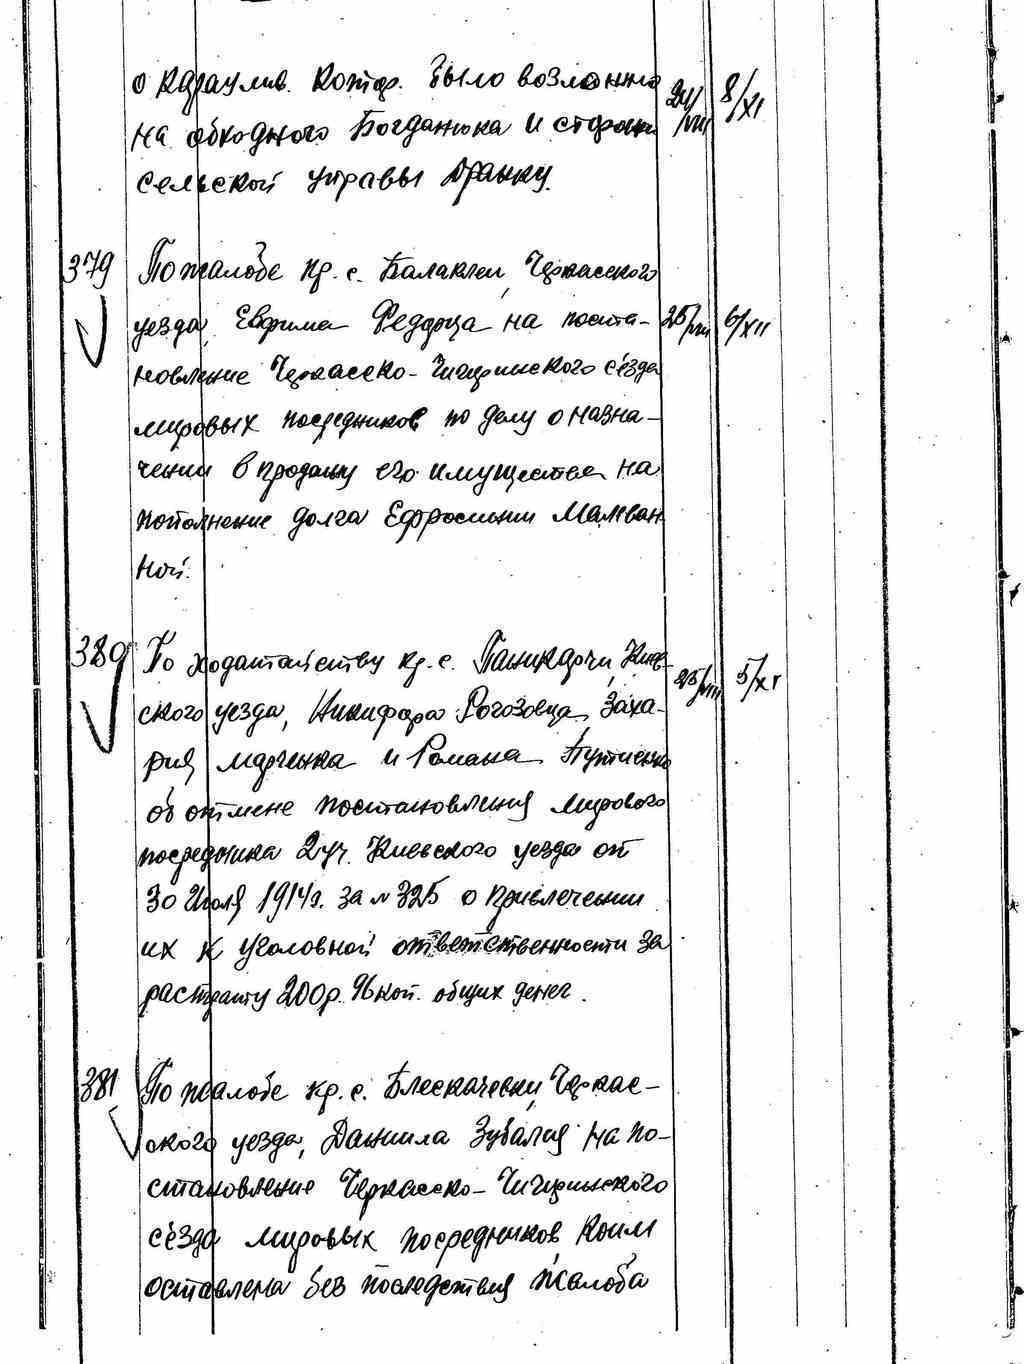 о караулив. котор. было возложено 24/VIII 8/XI
на обходного Богданюка и сторожа
сельской управы Франку.
379 По жалобе кр. с. Балаклеи, Черкасского
уезда, Евфима Феддрца на поста- 25/VIII 6/XII
новление Черкасско-Чигиринского сезда
мировых посредников по делу о назна-
чении в продажу его имущества на
пополнение долга Ефросиньи Малеван
ной.
380 По ходатайству кр. с. Паникарчи, Киев- 25/VIII 5/XI
ского уезда, Никифора Рогозовца, Заха-
рия Марченка и Романа Путиенко
об отмене постановления мирового
посредника 2 уч. Киевского уезда от
30 Июля 1914г. за № 325 о привлечении
их к уголовной ответственности за
растрату 200р. 96 коп. общих денег.
381 По жалобе кр. с. Блескачевки, Черкас-
ского уезда, Даниила Зубалия на по-
становление Черкасско-Чигиринского
сезда мировых посредников, коим
оставлена без последствия жалоба